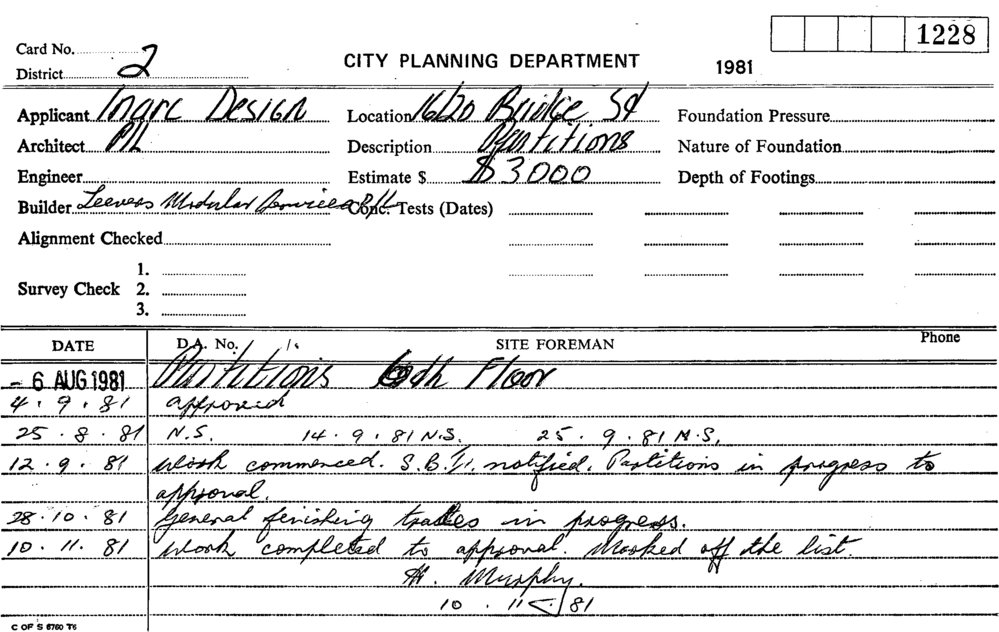 1228
Card No.
District 2
CITY PLANNING DEPARTMENT 1981
Applicant Inarc Design Location 16/20 Bridge St Foundation Pressure
Architect P/L Description Partitions Nature of Foundation
Engineer Estimate $ $3000 Depth of Footings
Builder Leevers Modular Services P/L Conc. Tests (Dates)
Alignment Checked
1.
Survey Check 2.
3.
DATE D.A. No. /s SITE FOREMAN Phone
- 6 AUG 1981 Partitions Floor
4.9.81 approved
25.8.81 N.S. 14.9.81 N.S. 25.9.81 N.S.
12.9.81 Work commenced. notified. Partitions in progress to
approval.
28.10.81 General finishing trades in progress.
10.11.81 Work completed to approval. Marked off the list.
H. Murphy.
10.11.81
C OF S 6760 T6